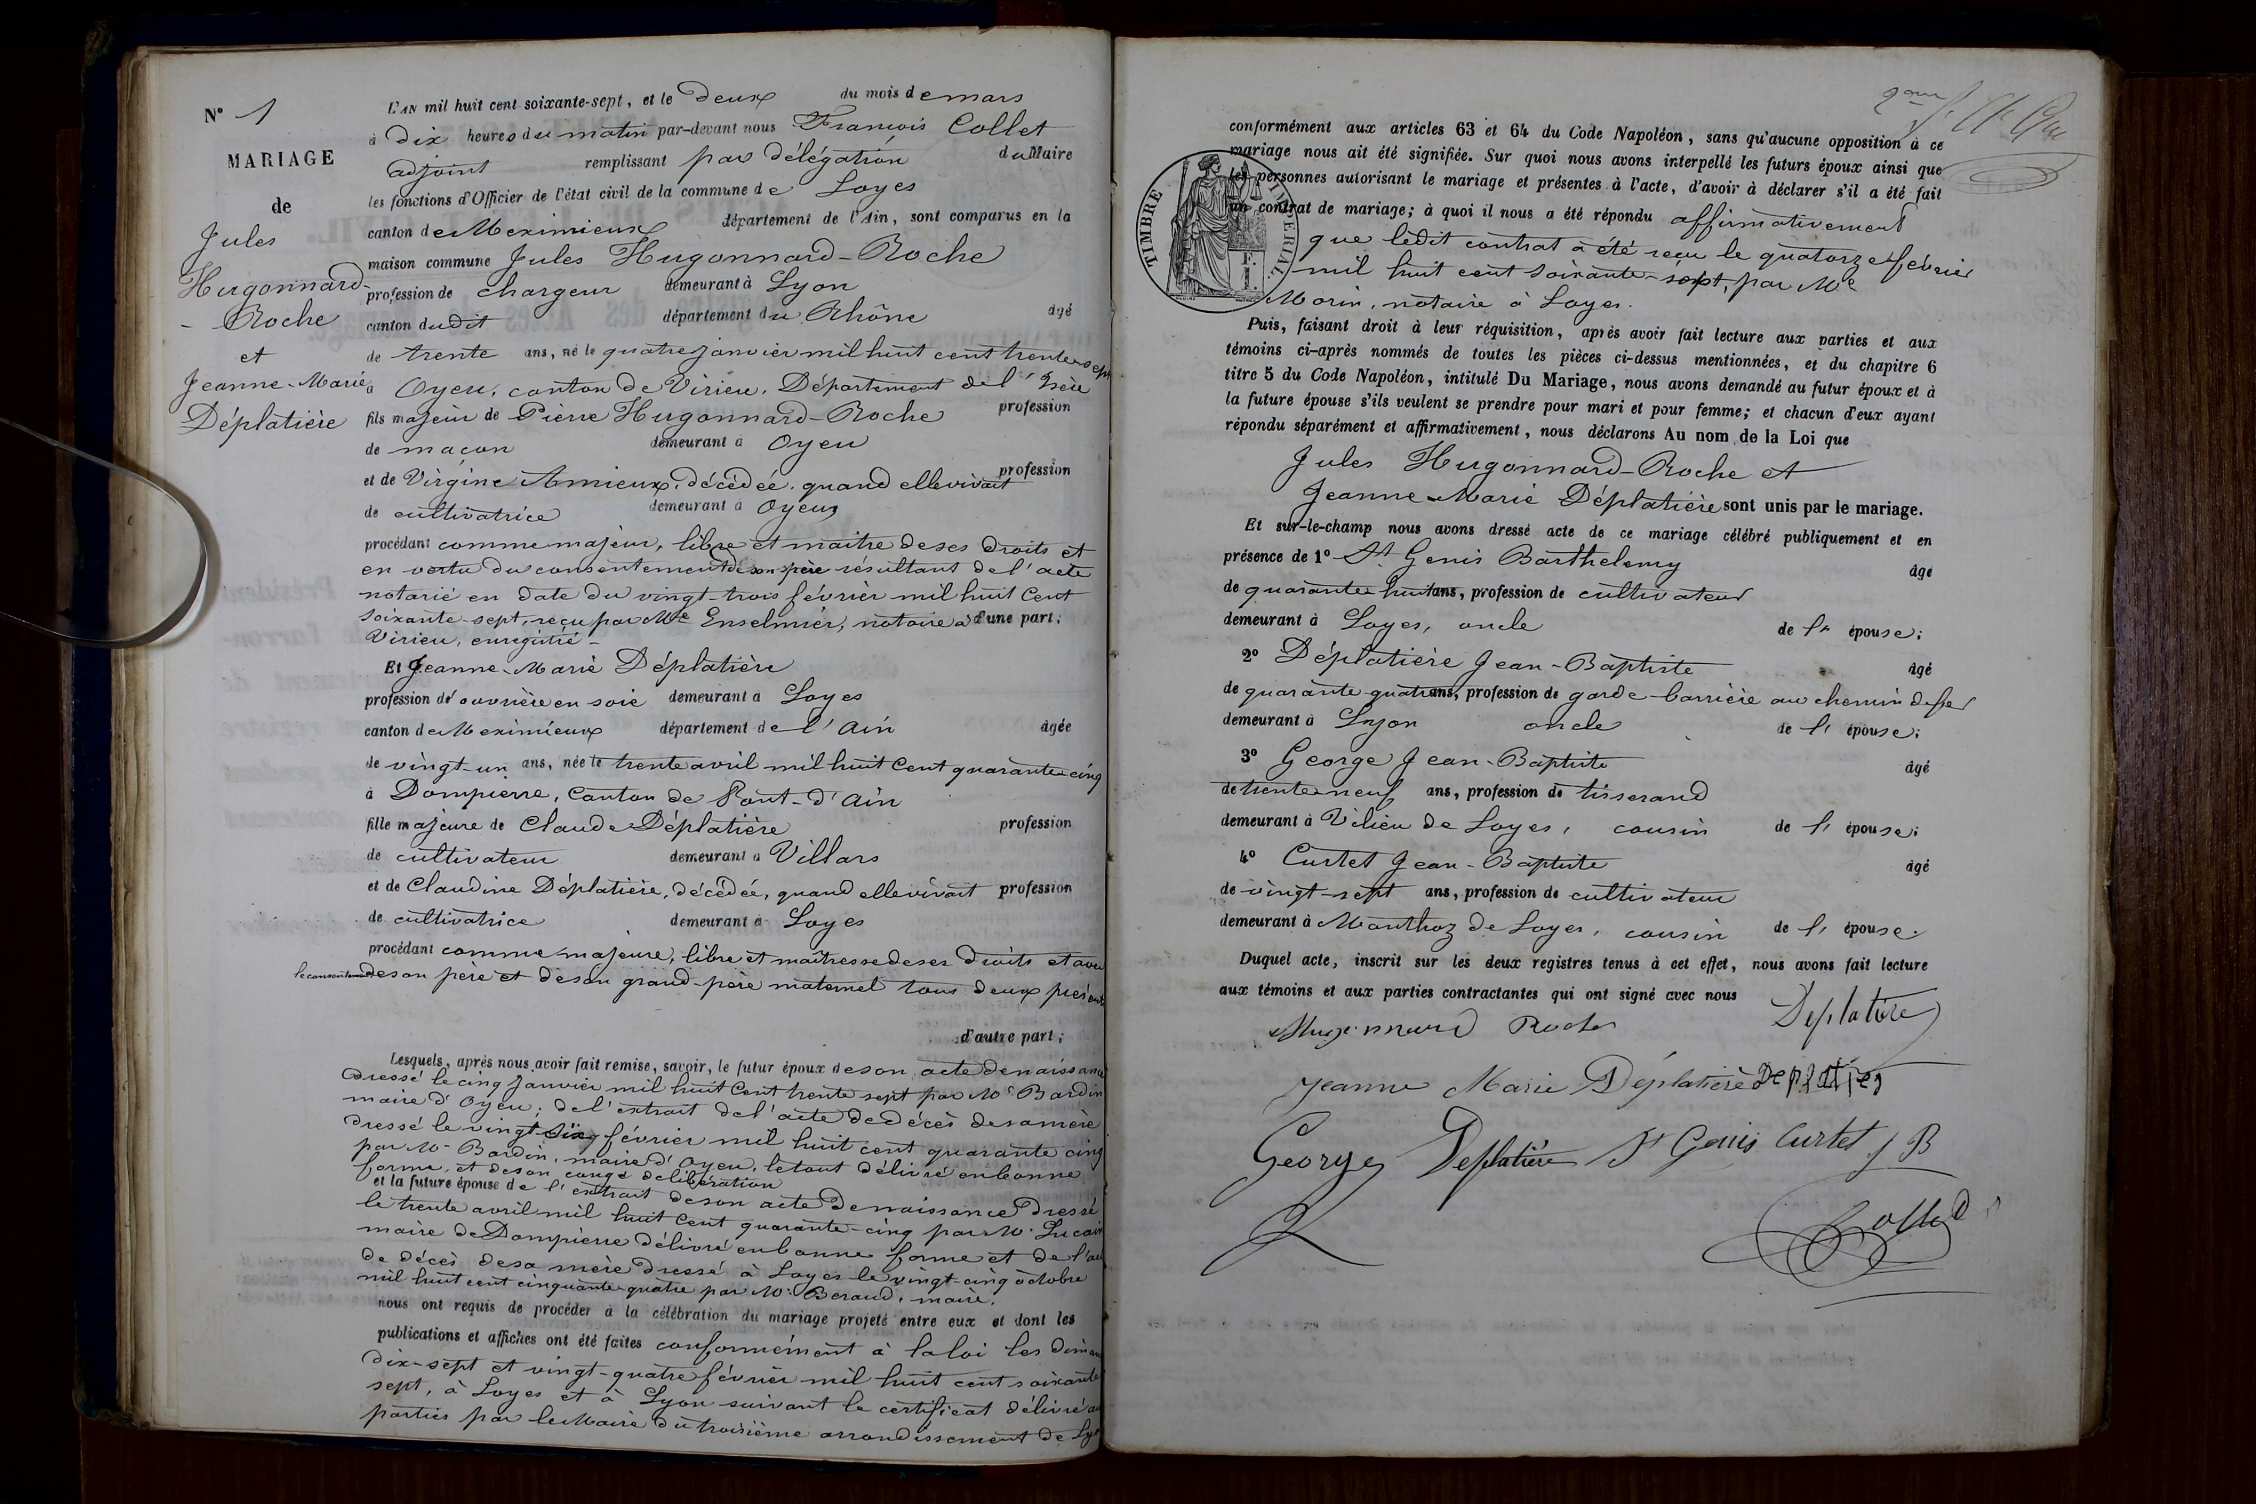 N° 1
MARIAGE
de
Jules
Hugonnard-
- Roche
et
Jeanne-Marie
Déplatière
L'AN mil huit cent soixante-sept, et le deux du mois de mars
à dix heures du matin par-devant nous François Collet
adjoint remplissant par délégation du Maire
les fonctions d'Officier de l'état civil de la commune de Loyes
canton de Meximieux département de l'Ain, sont comparus en la
maison commune Jules Hugonnard-Roche
profession de chargeur demeurant à Lyon
canton dudit département du Rhône âgé
de trente ans, né le quatre janvier mil huit cent trente sept
à Oyeu, canton de Virieu, Département de l'Isère
fils majeur de Pierre Hugonnard-Roche profession
de maçon demeurant à Oyeu
et de Virginie Amieux, décédée, quand elle vivait profession
de cultivatrice demeurant à Oyeux
procédant comme majeur, libre et maître de ses droits et
en vertu du consentement de son père résultant de l'acte
notarié en date du vingt-trois février mil huit cent
soixante-sept, reçu par Me Enselmier, notaire à d'une part;
Virieu, enregistré -
Et Jeanne-Marie Déplatière
profession d'ouvrière en soie demeurant à Loyes
canton de Meximieux département de l'Ain âgée
de vingt-un ans, née le trente avril mil huit cent quarante cinq
à Dompierre, canton de Pont-d'Ain
fille majeure de Claude Déplatière profession
de cultivateur demeurant à Villars
et de Claudine Déplatière, décédée, quand elle vivait profession
de cultivatrice demeurant à Loyes
procédant comme majeure, libre et maîtresse de ses droits et avec
le consentement de son père et de son grand-père maternel tous deux présents
d'autre part;
Lesquels, après nous avoir fait remise, savoir, le futur époux de son acte de naissance
dressé le cinq janvier mil huit cent trente sept par Mr Bardin
maire d'Oyeu; de l'extrait de l'acte de décès de sa mère
dressé le vingt six février mil huit cent quarante cinq
par Mr Bardin, maire d'Oyeu, le tout délivré en bonne
forme, et de son congé de libération
et la future épouse de l'extrait de son acte de naissance dressé
le trente avril mil huit cent quarante-cinq par Mr
maire de Dompierre délivré en bonne forme et de l'acte
de décès de sa mère dressé à Loyes le vingt-cinq octobre
mil huit cent cinquante-quatre par Mr Beraud, maire,
nous ont requis de procéder à la célébration du mariage projeté entre eux et dont les
publications et affiches ont été faites conformément à la loi les
dix-sept et vingt-quatre février mil huit cent soixante
sept, à Loyes et à Lyon suivant le certificat délivré
parties par le Maire du troisième arrondissement de Lyon
2me
conformément aux articles 63 et 64 du Code Napoléon, sans qu'aucune opposition à ce
mariage nous ait été signifiée. Sur quoi nous avons interpellé les futurs époux ainsi que
les personnes autorisant le mariage et présentes à l'acte, d'avoir à déclarer s'il a été fait
un contrat de mariage; à quoi il nous a été répondu affirmativement
que ledit contrat a été reçu le quatorze février
mil huit cent soixante-sept, par Me
Morin, notaire à Loyes.
TIMBRE IMPERIAL.
Puis, faisant droit à leur réquisition, après avoir fait lecture aux parties et aux
témoins ci-après nommés de toutes les pièces ci-dessus mentionnées, et du chapitre 6
titre 5 du Code Napoléon, intitulé Du Mariage, nous avons demandé au futur époux et à
la future épouse s'ils veulent se prendre pour mari et pour femme; et chacun d'eux ayant
répondu séparément et affirmativement, nous déclarons Au nom de la Loi que
Jules Hugonnard-Roche et
Jeanne-Marie Déplatière sont unis par le mariage.
Et sur-le-champ nous avons dressé acte de ce mariage célébré publiquement et en
présence de 1° St Genis Barthelemy âgé
de quarante huit ans, profession de cultivateur
demeurant à Loyes, oncle de l' épouse;
2° Déplatière Jean-Baptiste âgé
de quarante quatre ans, profession de garde-barrière au chemin de fer
demeurant à Lyon oncle de l' épouse;
3° George Jean-Baptiste âgé
de trente neuf ans, profession de tisserand
demeurant à Vilieu de Loyes, cousin de l' épouse;
4° Curtet Jean-Baptiste âgé
de vingt-sept ans, profession de cultivateur
demeurant à Monthoz de Loyes, cousin de l' épouse.
Duquel acte, inscrit sur les deux registres tenus à cet effet, nous avons fait lecture
aux témoins et aux parties contractantes qui ont signé avec nous
Hugonnard Roche Deplatière
Jeanne Marie Déplatière
George Deplatière St Genis Curtet J B
Collet